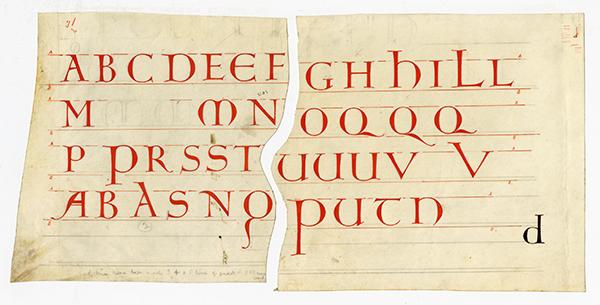 A B C D E E F G H h I L L
M m N O Q Q Q
P P R S S T U U U V V
A B A S N Q P U T N
d